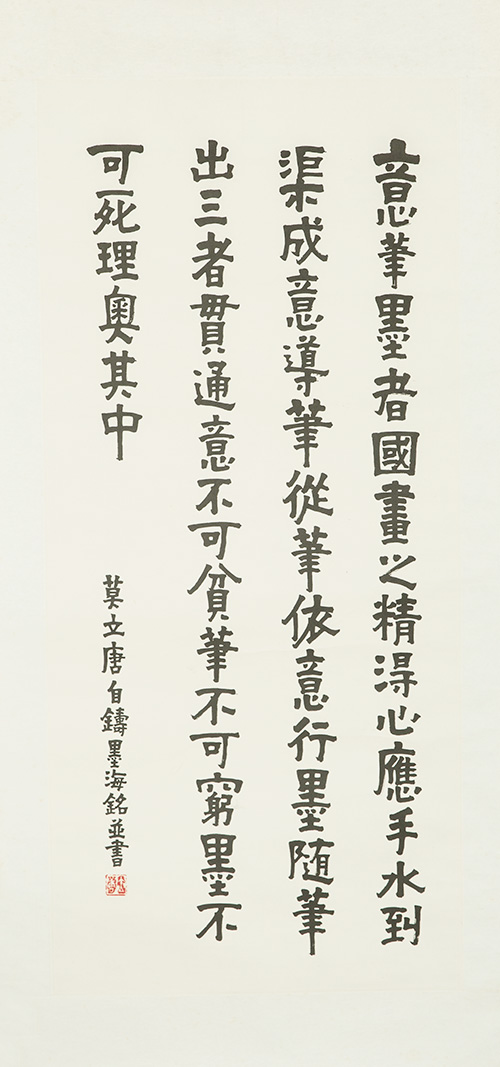 意筆墨者國畫之精淂心應手水到
渠成意導筆從筆依意行墨随筆
出三者貫通意不可貧筆不可窮墨不
可死理奧其中
莫立唐自鑄墨海銘並書